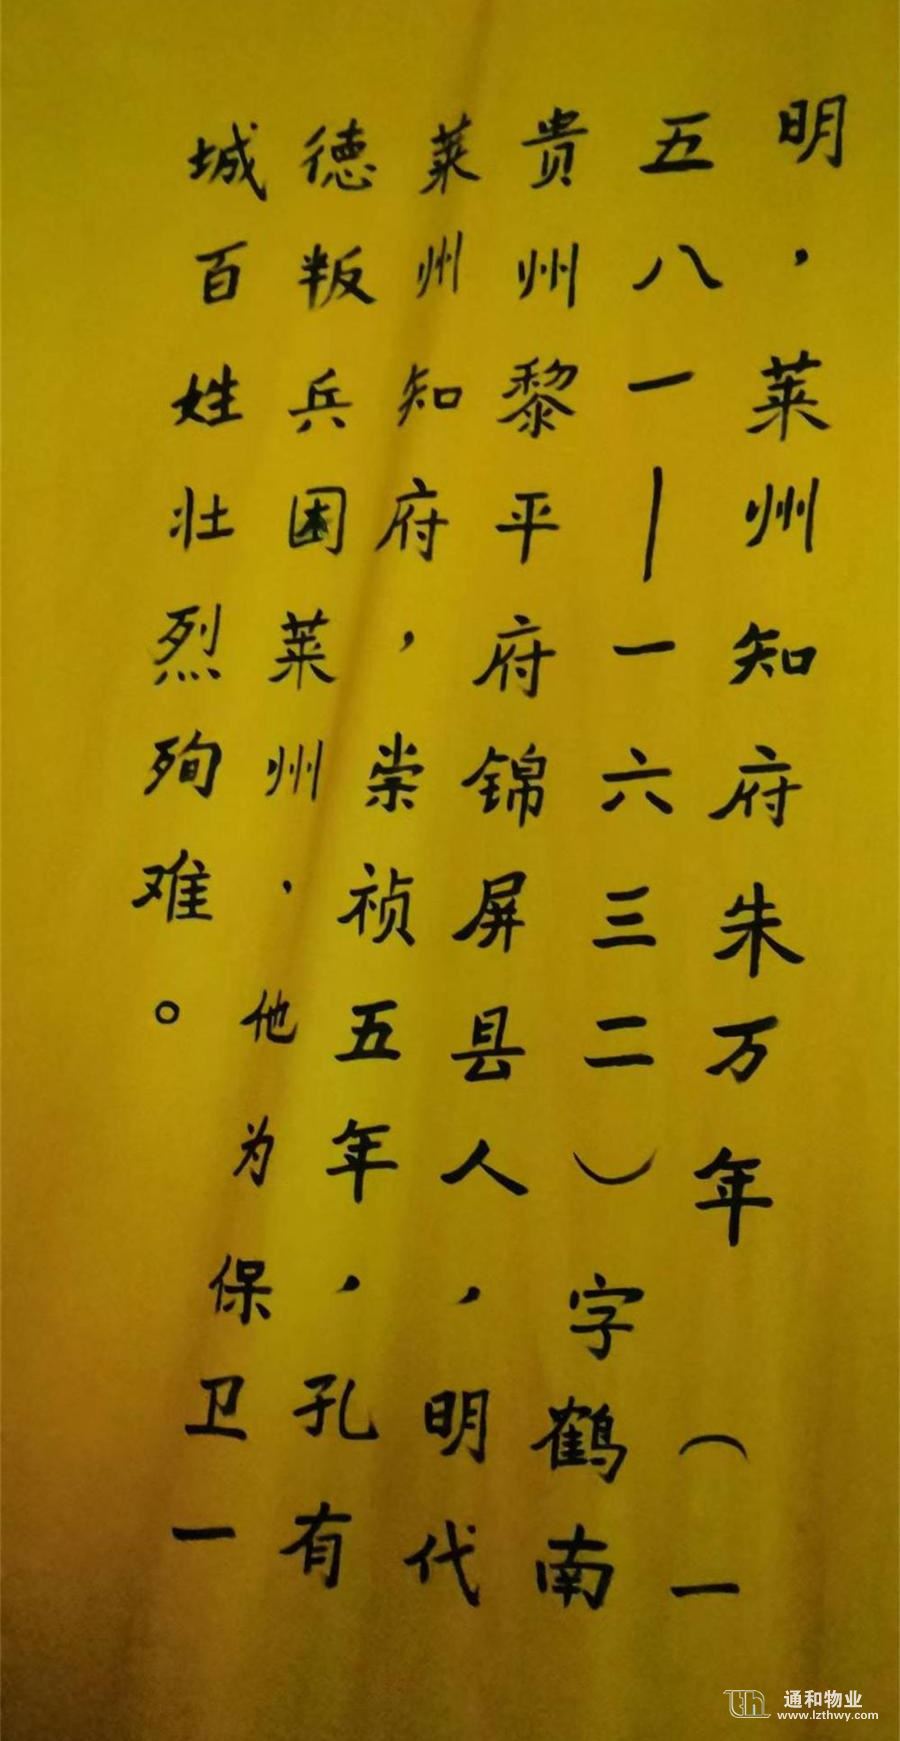 明，莱州知府朱万年（一
五八一—一六三二）字鹤南
贵州黎平府锦屏县人，明代
莱州知府，崇祯五年，孔有
德叛兵困莱州．他为保卫一
城百姓壮烈殉难。
通和物业
www.lzthwy.com